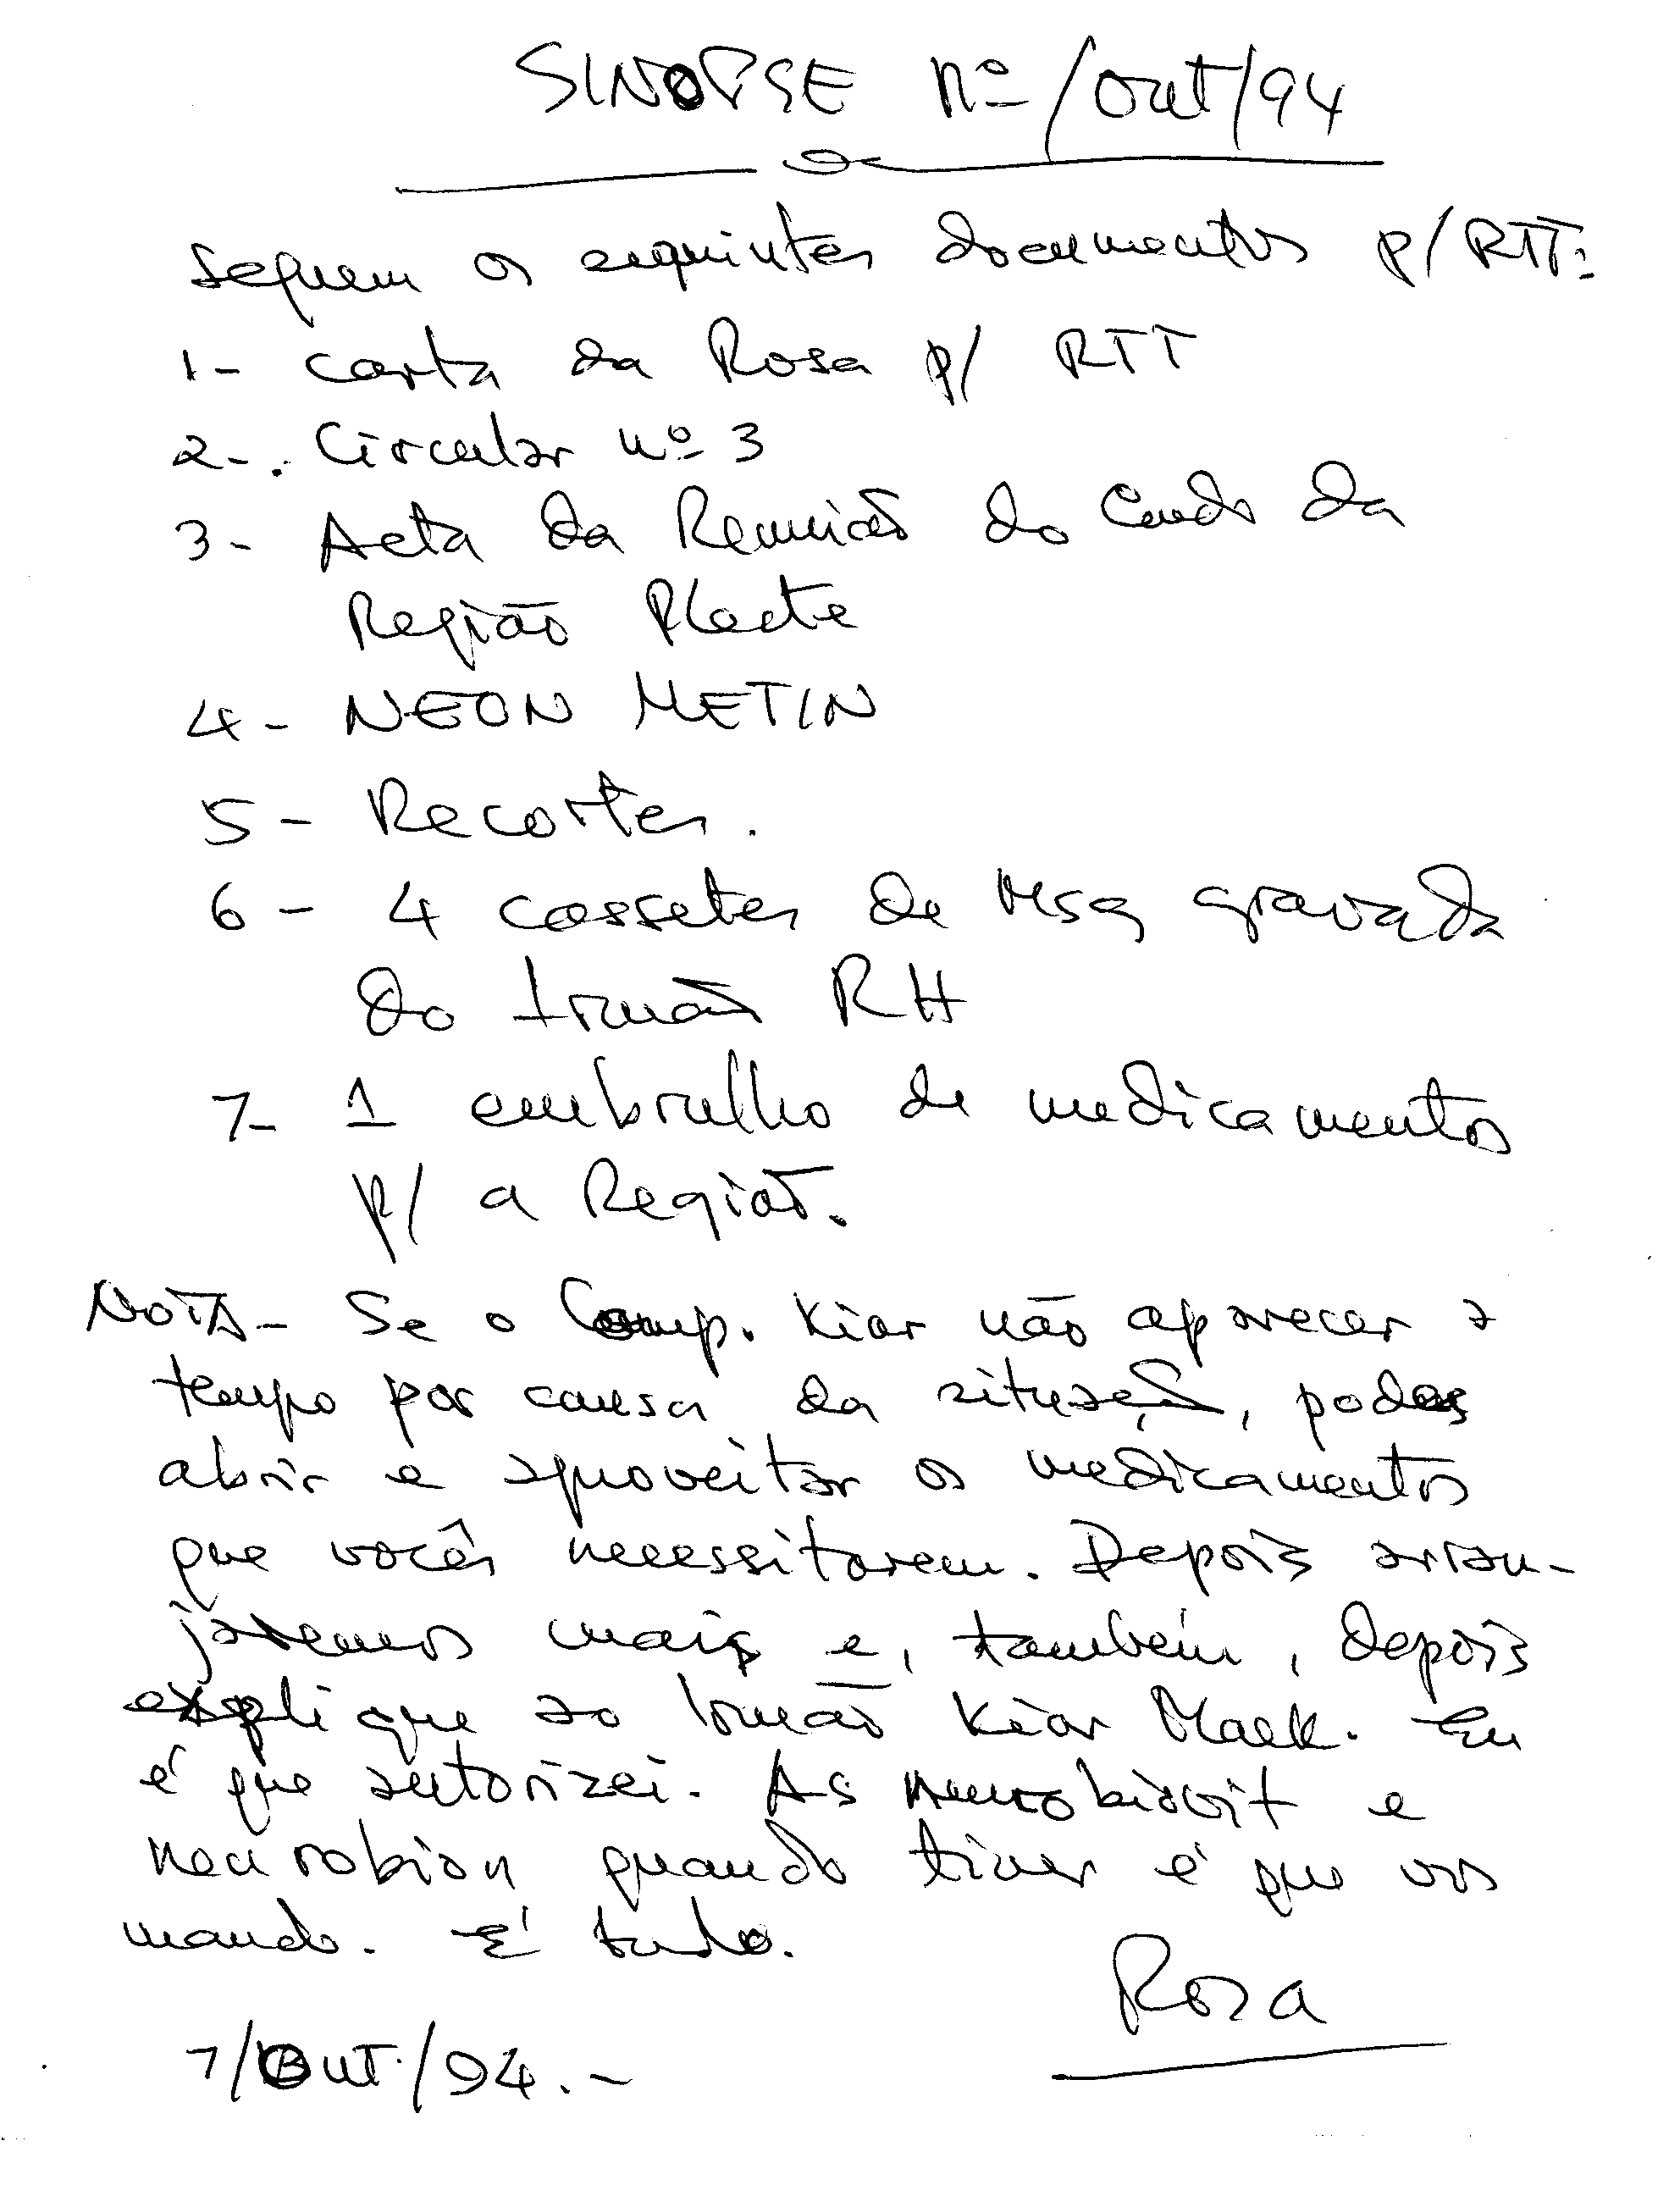 SINOPSE nº /OUT/94
Seguem os seguintes documentos p/ RTT:
1- Carta da Rosa p/ RTT
2-. Circular nº 3
3- Acta da Reunião do da
Região
4- NEON METIN
5- Recortes.
6- 4 cassetes de Msg gravada
do Irmão RH
7- 1 embrulho de medicamentos
p/ a Região.
NOTA- Se o Comp. Kiar não aparecer a
tempo por causa da situação, podes
abrir e aproveitar os medicamentos
que vocês necessitarem. Depois arran-
jaremos mais e, também, depois
explique ao Irmão Kiar Maek. Eu
é que autorizei. As e
neurobion quando tiver é que vos
mando. É tudo.
Rosa
7/OUT/94.-